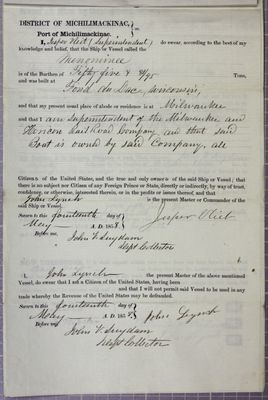 DISTRICT OF MICHILIMACKINAC,
Port of Michilimackinac.
I, Jesper Vliet (Superintendent) do swear, according to the best of my
knowledge and belief, that the Ship or Vessel called the
Menominee
is of the Burthen of Fifty five & /95 Tons,
and was built at Fond du Lac, Wisconsin,
and that my present usual place of abode or residence is at Milwaukee
and that I am Superintendent of the Milwaukee and
Horicon Rail Road Company and that said
Boat is owned by said Company, all
Citizens of the United States, and the true and only owners of the said Ship or Vessel; that
there is no subject nor Citizen of any Foreign Prince or State, directly or indirectly, by way of trust,
confidence, or otherwise, interested therein, or in the profits or issues thereof, and that
John Lynch is the present Master or Commander of the
said Ship or Vessel.
Sworn to this fourteenth day of
May A.D. 185
Before me, Jasper Vliet
John V. Suydam
Dept Collector
I, John Lynch the present Master of the above mentioned
Vessel, do swear that I am a Citizen of the United States, having been
and that I will not permit said Vessel to be used in any
trade whereby the Revenue of the United States may be defrauded.
Sworn to this fourteenth day of
May A.D. 185 John Lynch
Before me,
John V. Suydam
Dept Collector